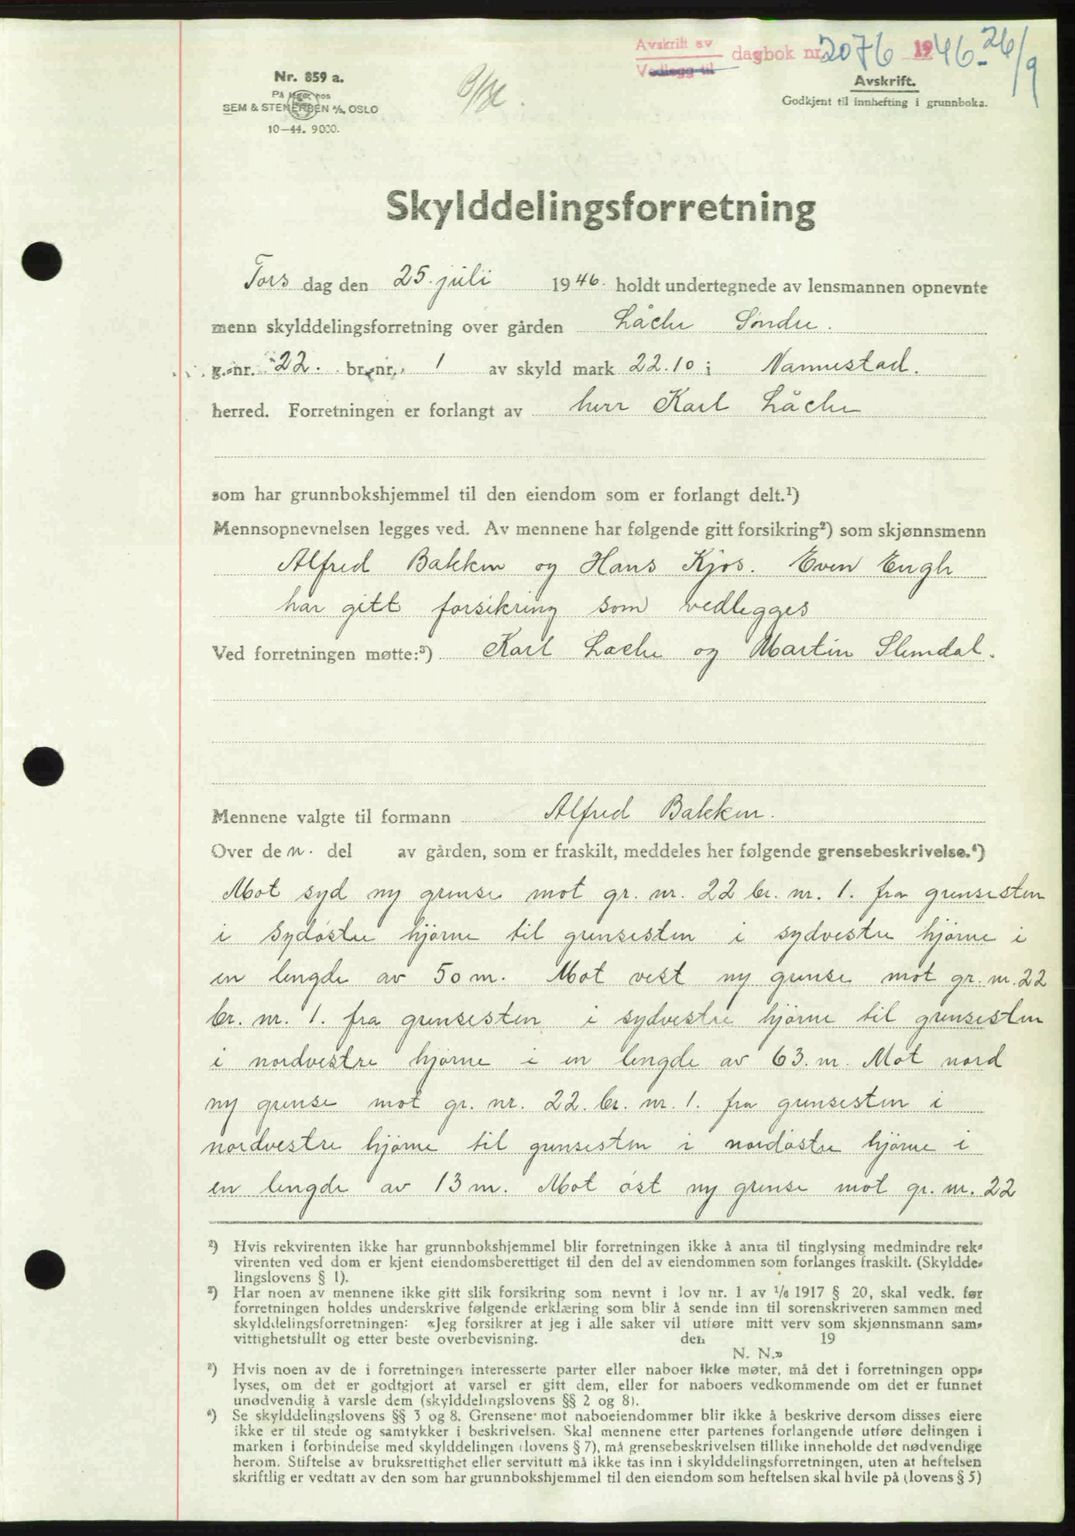 Avskrift av
Vedlegg til
dagbok nr. 2076 1946 - 26/9
Nr. 859 a.
På lager hos
SEM & STENERSEN A/S, OSLO
10-44. 9000.
Avskrift.
Godkjent til innhefting i grunnboka.
Skylddelingsforretning
Tors dag den 25. juli 1946. holdt undertegnede av lensmannen opnevnte
menn skylddelingsforretning over gården Låche Søndre.
g.nr. 22. br.nr. 1 av skyld mark 22.10 i Nannestad.
herred. Forretningen er forlangt av herr Karl Låche
som har grunnbokshjemmel til den eiendom som er forlangt delt.¹)
Mennsopnevnelsen legges ved. Av mennene har følgende gitt forsikring²) som skjønnsmenn
Alfred Bakken og Hans Kjos. Even Engh
har gitt forsikring som vedlegges
Ved forretningen møtte:³) Karl Låche og Martin Slemdal.
Mennene valgte til formann Alfred Bakken.
Over den. del av gården, som er fraskilt, meddeles her følgende grensebeskrivelse.⁴)
Mot syd ny grense mot gr. nr. 22 br. nr. 1. fra grensesten
i Sydøstre hjørne til grensesten i sydvestre hjørne i
en lengde av 50 m. Mot vest ny grense mot gr. nr. 22
br. nr. 1. fra grensesten i sydvestre hjørne til grensesten
i nordvestre hjørne i en lengde av 63. m. Mot nord
ny grense mot gr. nr. 22. br. nr. 1. fra grensesten i
nordvestre hjørne til grensesten i nordøstre hjørne i
en lengde av 13 m. Mot øst ny grense mot gr. nr. 22
²) Hvis rekvirenten ikke har grunnbokshjemmel blir forretningen ikke å anta til tinglysing medmindre rek-
virenten ved dom er kjent eiendomsberettiget til den del av eiendommen som forlanges fraskilt. (Skyldde-
lingslovens § 1).
²) Har noen av mennene ikke gitt slik forsikring som nevnt i lov nr. 1 av 1/6 1917 § 20, skal vedk. før
forretningen holdes underskrive følgende erklæring som blir å sende inn til sorenskriveren sammen med
skylddelingsforretningen: «Jeg forsikrer at jeg i alle saker vil utføre mitt verv som skjønnsmann sam-
vittighetsfullt og etter beste overbevisning. den 19
N. N.»
³) Hvis noen av de i forretningen interesserte parter eller naboer ikke møter, må det i forretningen opp-
lyses, om det er godtgjort at varsel er gitt dem, eller for naboers vedkommende om det er funnet
unødvendig å varsle dem (skylddelingslovens §§ 2 og 8).
⁴) Se skylddelingslovens §§ 3 og 8. Grensene mot naboeiendommer blir ikke å beskrive dersom disses eiere
ikke er til stede og samtykker i beskrivelsen. Skal mennene etter partenes forlangende utføre delingen i
marken i forbindelse med skylddelingen (lovens § 7), må grensebeskrivelsen tillike inneholde det nødvendige
herom. Stiftelse av bruksrettighet eller servitutt må ikke tas inn i skylddelingsforretningen, uten at heftelsen
skriftlig er vedtatt av den som har grunnbokshjemmel til den eiendom som heftelsen skal hvile på (lovens § 5)